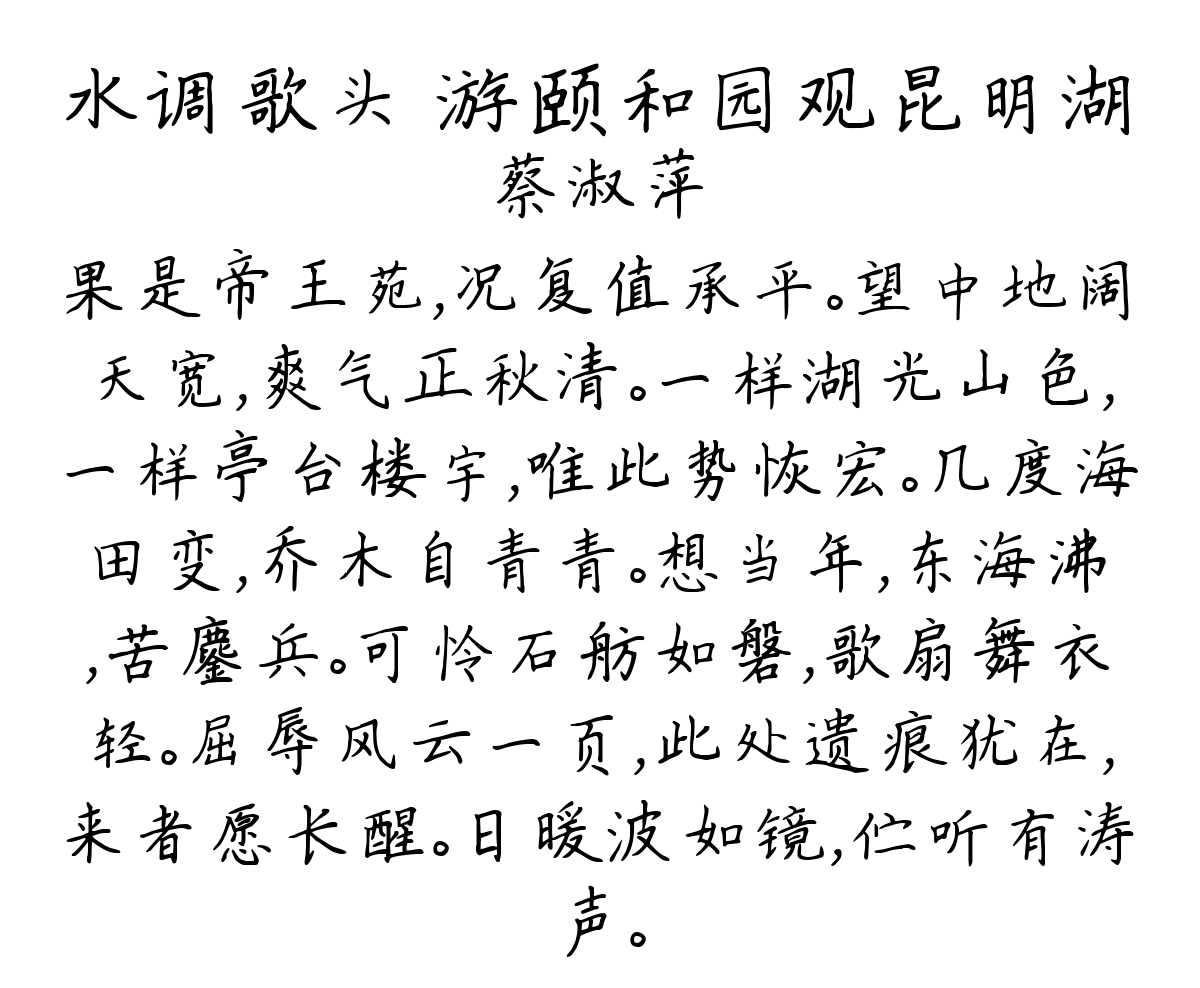 水调歌头 游颐和园观昆明湖
蔡淑萍
果是帝王苑,况复值承平。望中地阔
天宽,爽气正秋清。一样湖光山色,
一样亭台楼宇,唯此势恢宏。几度海
田变,乔木自青青。想当年,东海沸
,苦鏖兵。可怜石舫如磐,歌扇舞衣
轻。屈辱风云一页,此处遗痕犹在,
来者愿长醒。日暖波如镜,伫听有涛
声。